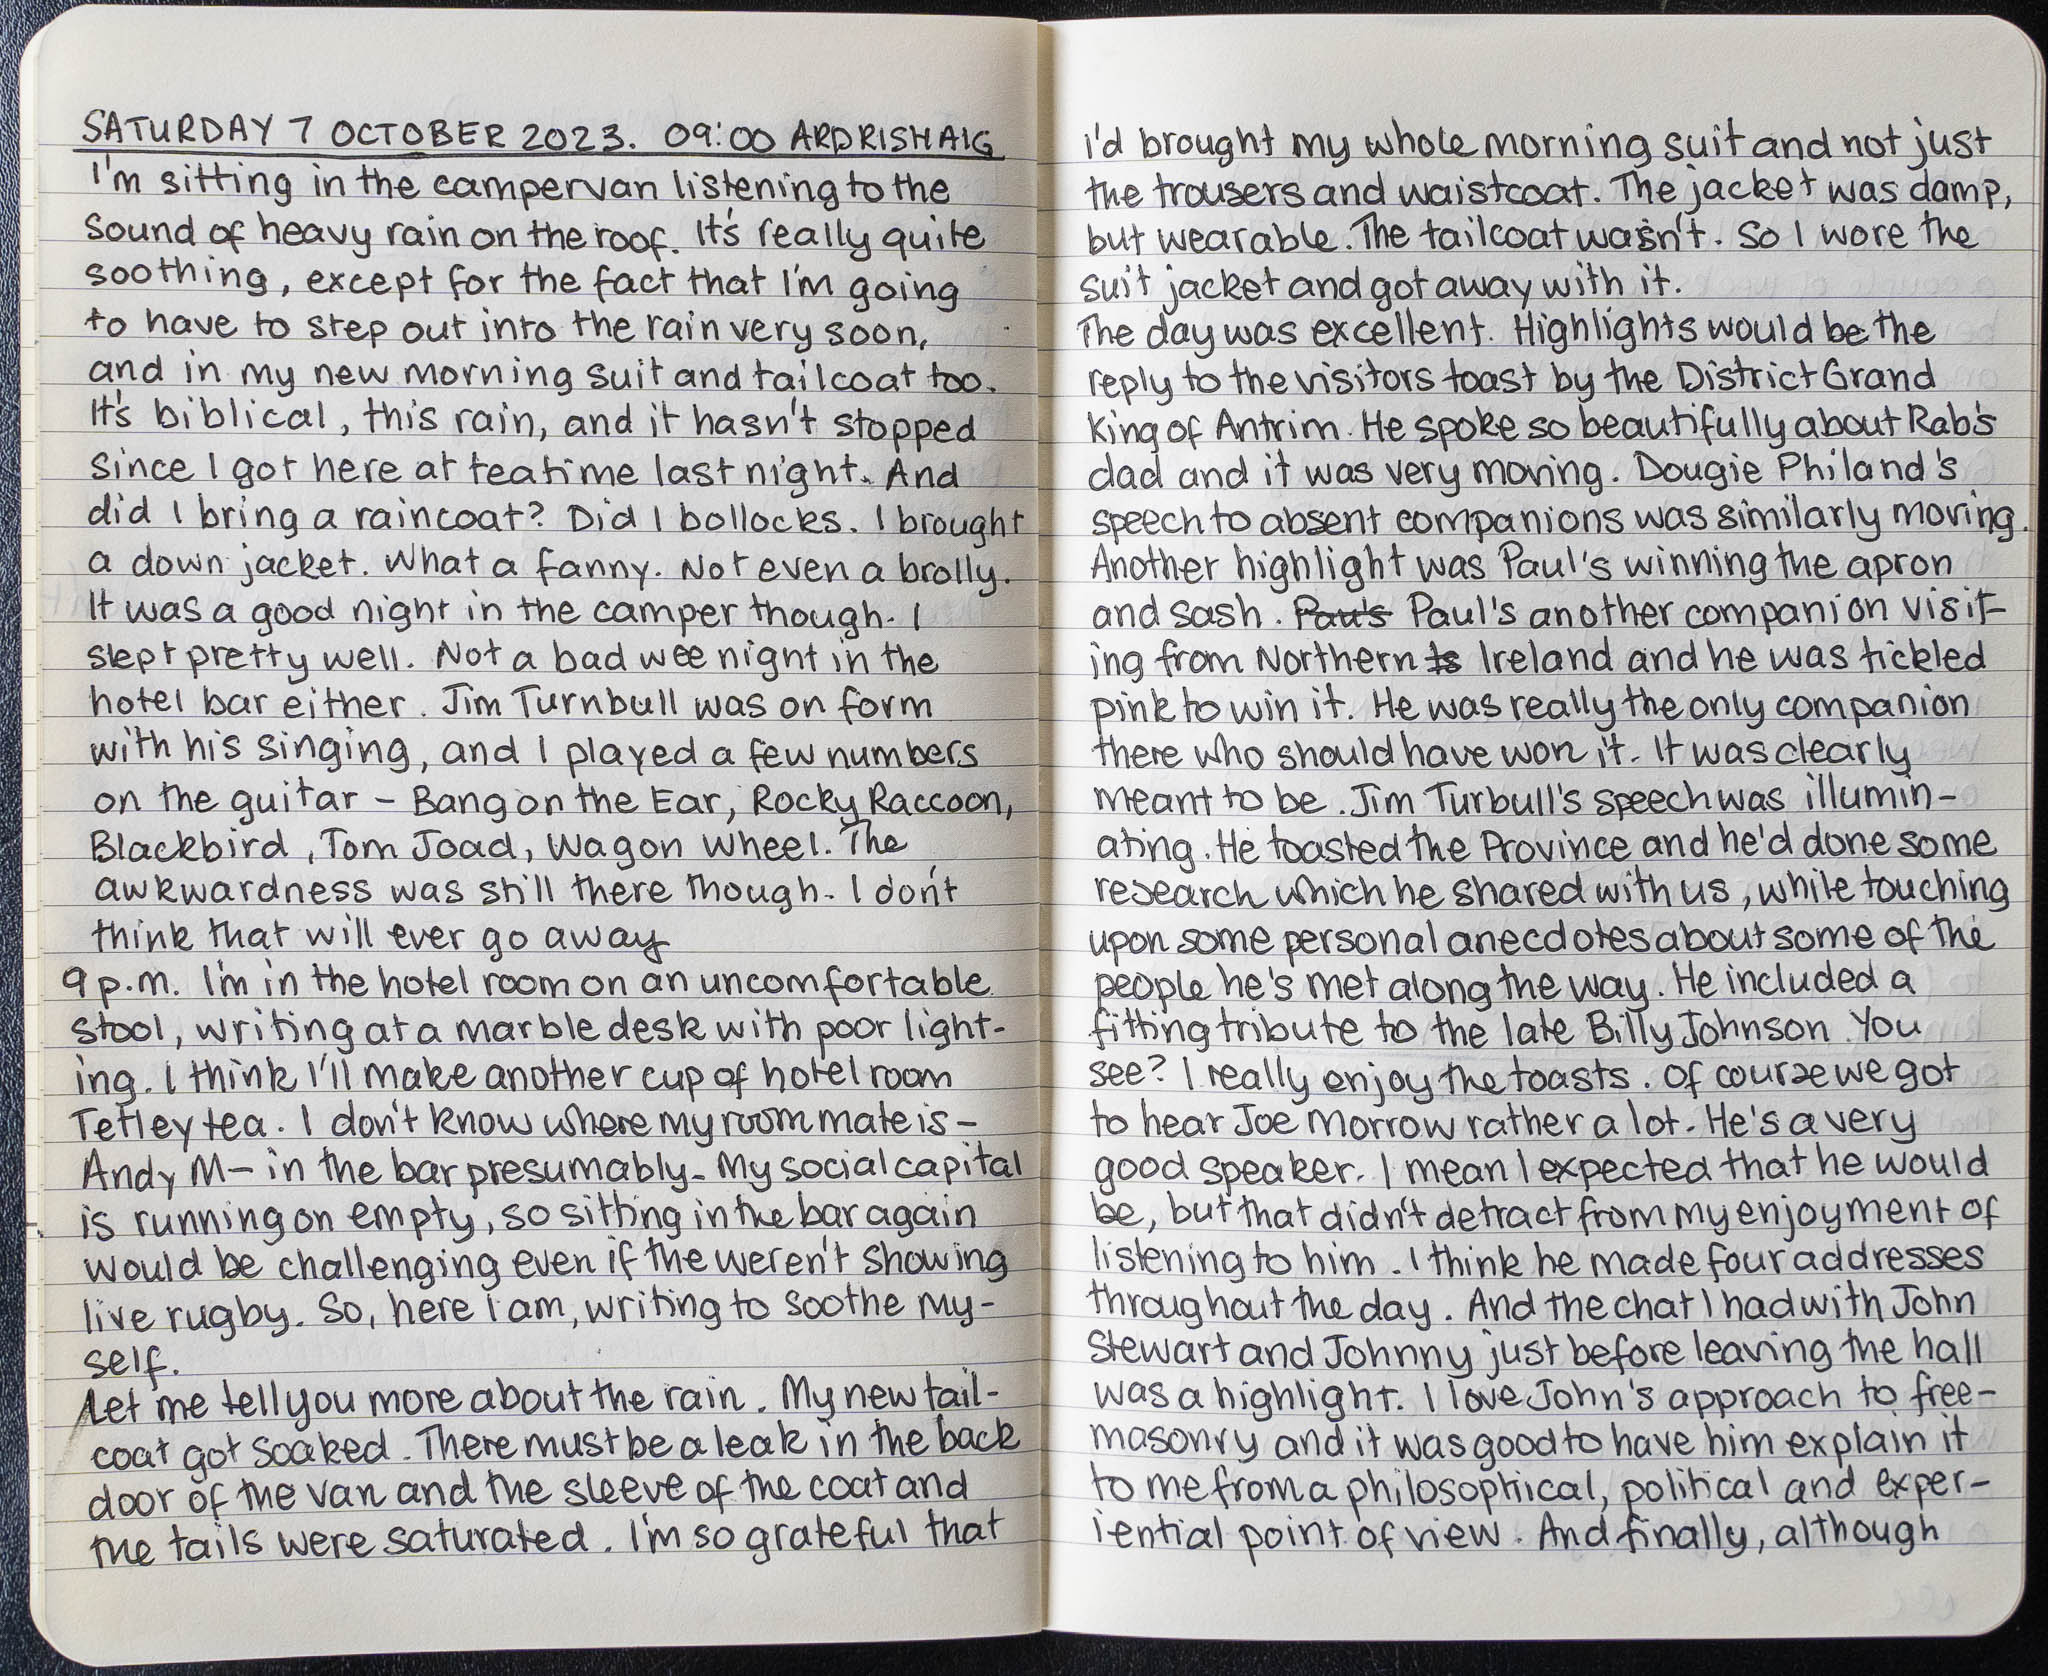 SATURDAY 7 OCTOBER 2023. 09:00 ARDRISHAIG
I'm sitting in the campervan listening to the
sound of heavy rain on the roof. It's really quite
soothing, except for the fact that I'm going
to have to step out into the rain very soon,
and in my new morning suit and tailcoat too.
It's biblical, this rain, and it hasn't stopped
since I got here at teatime last night. And
did I bring a raincoat? Did I bollocks. I brought
a down jacket. What a fanny. Not even a brolly.
It was a good night in the camper though. I
slept pretty well. Not a bad wee night in the
hotel bar either. Jim Turnbull was on form
with his singing, and I played a few numbers
on the guitar – Bang on the Ear, Rocky Raccoon,
Blackbird, Tom Joad, Wagon Wheel. The
awkwardness was still there though. I don't
think that will ever go away
9 p.m. I'm in the hotel room on an uncomfortable
stool, writing at a marble desk with poor light-
ing. I think I'll make another cup of hotel room
Tetley tea. I don't know where my room mate is –
Andy M – in the bar presumably. My social capital
is running on empty, so sitting in the bar again
would be challenging even if the weren't showing
live rugby. So, here i am, writing to soothe my-
self.
Let me tell you more about the rain. My new tail-
coat got soaked. There must be a leak in the back
door of the van and the sleeve of the coat and
the tails were saturated. I'm so grateful that
i'd brought my whole morning suit and not just
the trousers and waistcoat. The jacket was damp,
but wearable. The tailcoat wasn't. So I wore the
suit jacket and got away with it.
The day was excellent. Highlights would be the
reply to the visitors toast by the District Grand
King of Antrim. He spoke so beautifully about Rab's
dad and it was very moving. Dougie Philand's
speech to absent companions was similarly moving.
Another highlight was Paul's winning the apron
and sash. Pau's Paul's another companion visit-
ing from Northern Is Ireland and he was tickled
pink to win it. He was really the only companion
there who should have won it. It was clearly
meant to be. Jim Turbull's speech was illumin-
ating. He toasted the Province and he'd done some
research which he shared with us, while touching
upon some personal anecdotes about some of the
people he's met along the way. He included a
fitting tribute to the late Billy Johnson. You
see? I really enjoy the toasts. Of course we got
to hear Joe Morrow rather a lot. He's a very
good speaker. I mean I expected that he would
be, but that didn't detract from my enjoyment of
listening to him. I think he made four addresses
throughout the day. And the chat I had with John
Stewart and Johnny just before leaving the hall
was a highlight. I love John's approach to free-
masonry and it was good to have him explain it
to me from a philosophical, political and exper-
iential point of view. And finally, although